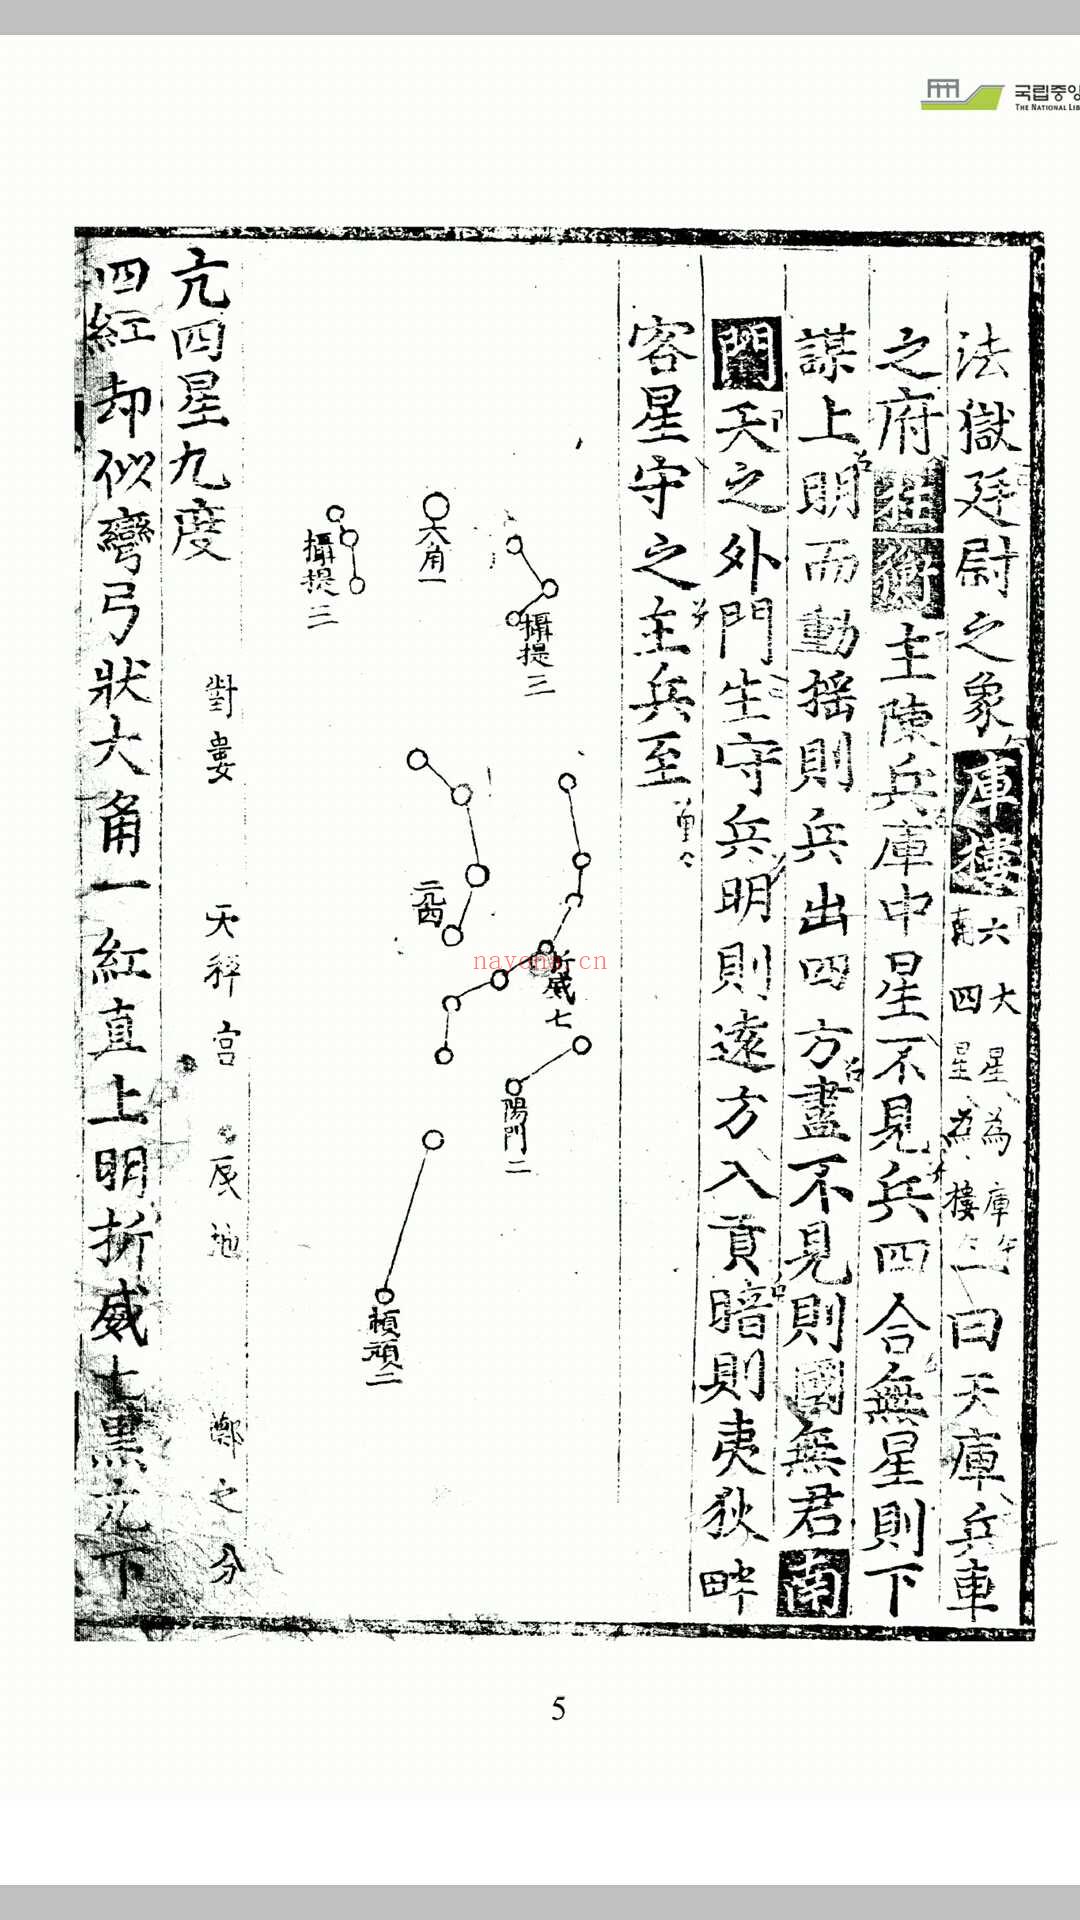 국립중앙
THE NATIONAL LIB
法獄廷尉之象庫樓六大星為庫
南四星為樓一曰天庫兵車
之府柱衡主陳兵庫中星不見兵四合無星則下
謀上明而動搖則兵出四方盡不見則國無君南
門天之外門主守兵明則遠方入貢暗則夷狄畔
客星守之主兵至
攝提三
大角一
攝提三
亢四
折威七
陽門二
頓頑二
亢四星九度
對婁 天秤宮 辰地 鄭之分
四紅却似彎弓狀大角一紅直上明折威七黑亢下
nayona.cn
5